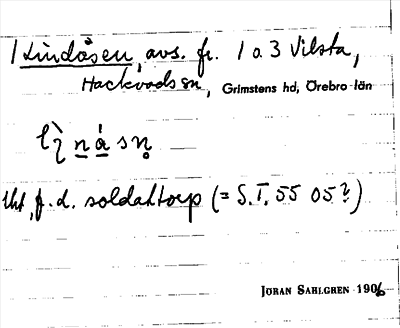 1 Lindåsen, avs. fr. 1 o. 3 Vilsta,
Hackvads sn, Grimstens hd, Örebro län
lht, f.d. soldattorp (= S.T. 55 05 ?)
JÖRAN SAHLGREN 1906